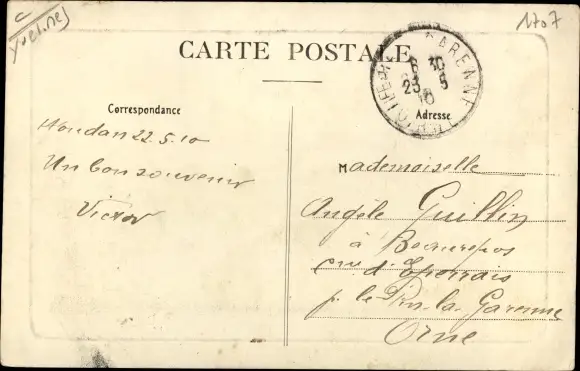 (Yvelines)
1707
CARTE POSTALE
GARENNE
6 30
23 - 5
10
Correspondance
Adresse
Houdan 22.5.10
Un bon souvenir
Victor
Mademoiselle
Angèle Guillin
à Beaurepos
cne d'Eperrais
p. le Pin-la-Garenne
Orne